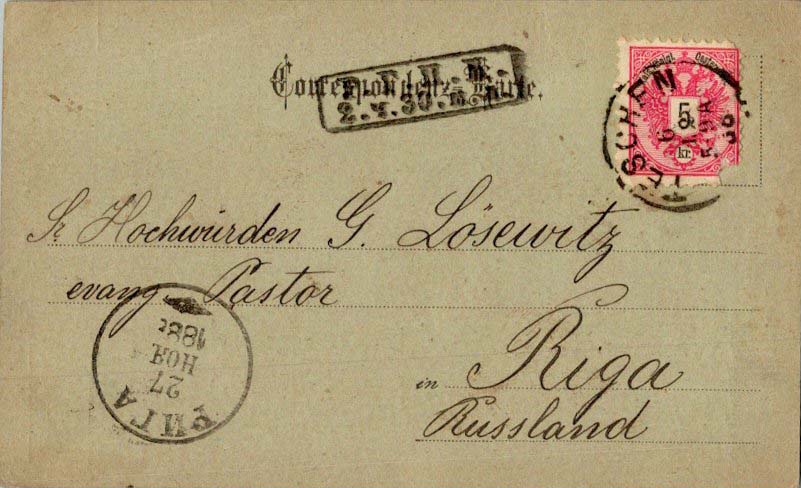 Correspondenz-Karte.
5
kr.
TESCHEN
Sr Hochwürden G. Lösewitz
evang Pastor
in Riga
Russland
РИГА
27
НОЯ